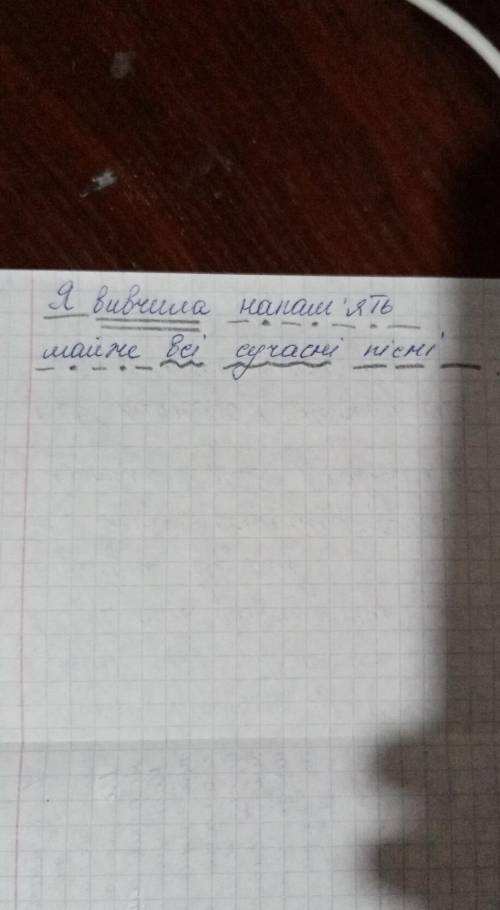 Я вивчила напам'ять
майже всі сучасні пісні